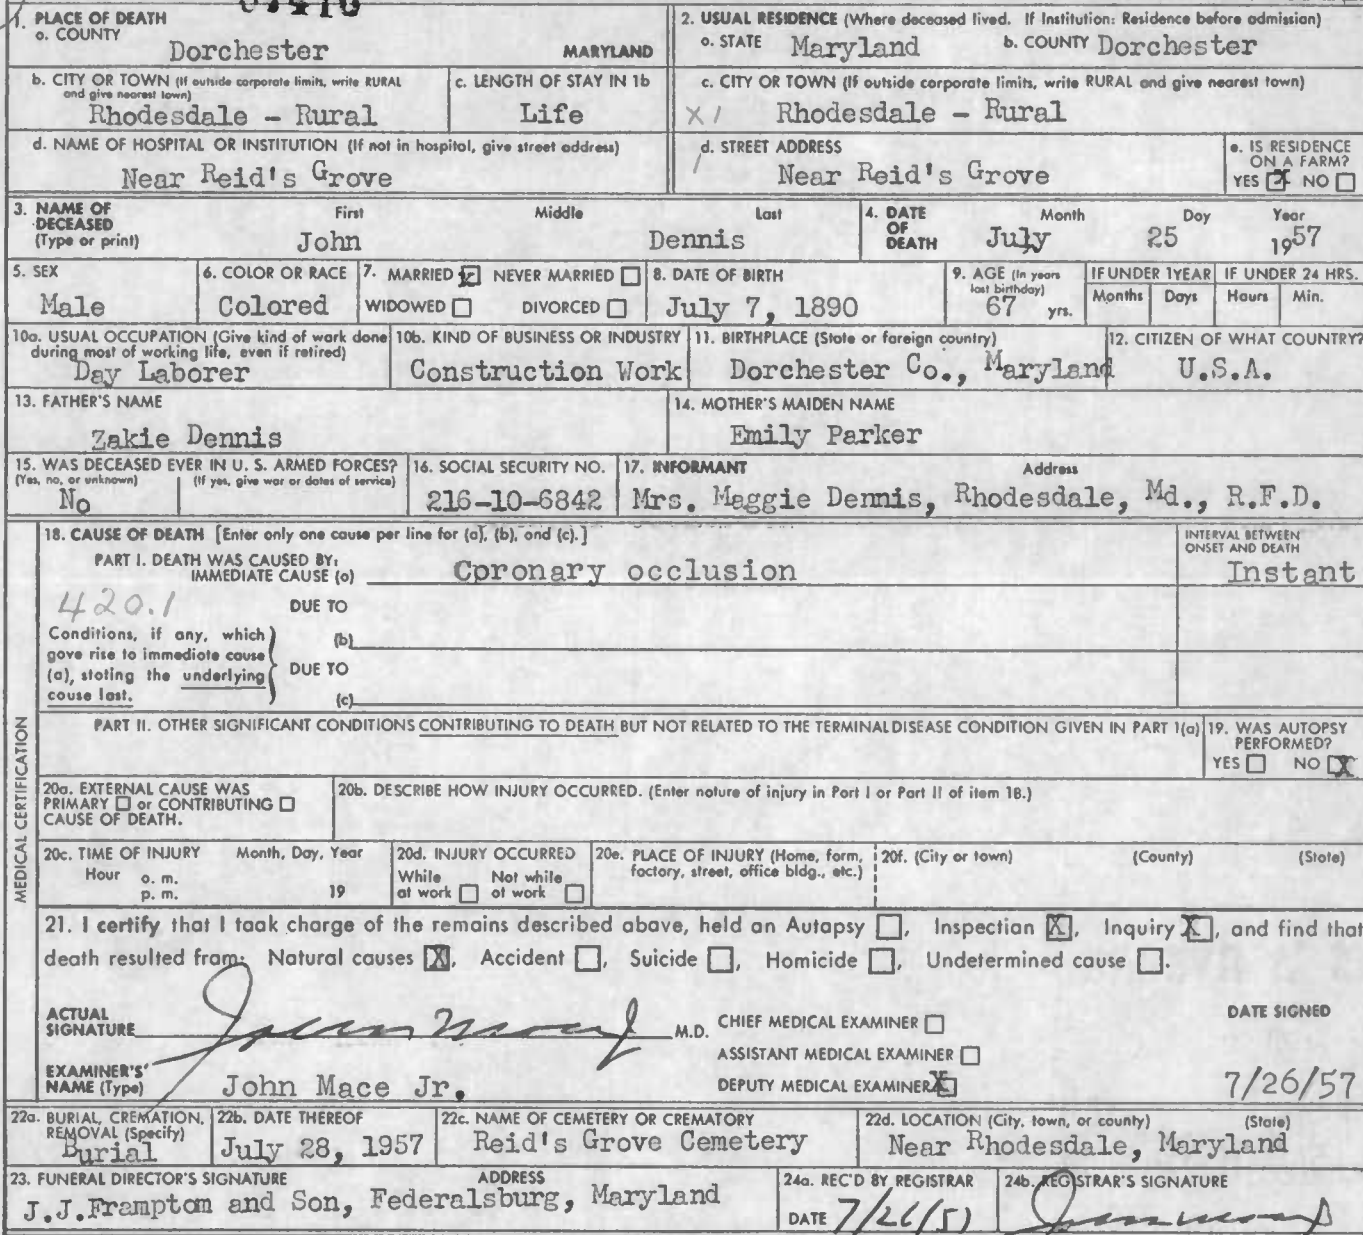 1. PLACE OF DEATH
a. COUNTY
Dorchester MARYLAND
2. USUAL RESIDENCE (Where deceased lived. If Institution: Residence before admission)
a. STATE Maryland b. COUNTY Dorchester
b. CITY OR TOWN (If outside corporate limits, write RURAL and give nearest town)
Rhodesdale - Rural
c. LENGTH OF STAY IN 1b
Life
c. CITY OR TOWN (If outside corporate limits, write RURAL and give nearest town)
X 1 Rhodesdale - Rural
d. NAME OF HOSPITAL OR INSTITUTION (If not in hospital, give street address)
Near Reid's Grove
d. STREET ADDRESS
Near Reid's Grove
e. IS RESIDENCE
ON A FARM?
YES X NO
3. NAME OF
DECEASED
(Type or print)
First Middle Last
John Dennis
4. DATE
OF
DEATH
Month Day Year
July 25 1957
5. SEX
Male
6. COLOR OR RACE
Colored
7. MARRIED NEVER MARRIED
WIDOWED DIVORCED
8. DATE OF BIRTH
July 7, 1890
9. AGE (In years
last birthday)
67 yrs.
IF UNDER 1 YEAR
Months Days
IF UNDER 24 HRS.
Hours Min.
10a. USUAL OCCUPATION (Give kind of work done
during most of working life, even if retired)
Day Laborer
10b. KIND OF BUSINESS OR INDUSTRY
Construction Work
11. BIRTHPLACE (State or foreign country)
Dorchester Co., Maryland
12. CITIZEN OF WHAT COUNTRY?
U.S.A.
13. FATHER'S NAME
Zakie Dennis
14. MOTHER'S MAIDEN NAME
Emily Parker
15. WAS DECEASED EVER IN U. S. ARMED FORCES?
(Yes, no, or unknown) (If yes, give war or dates of service)
No
16. SOCIAL SECURITY NO.
216-10-6842
17. INFORMANT Address
Mrs. Maggie Dennis, Rhodesdale, Md., R.F.D.
MEDICAL CERTIFICATION
18. CAUSE OF DEATH [Enter only one cause per line for (a), (b), and (c).]
INTERVAL BETWEEN
ONSET AND DEATH
PART I. DEATH WAS CAUSED BY:
IMMEDIATE CAUSE (a) Cpronary occlusion Instant
420.1 DUE TO
Conditions, if any, which
gave rise to immediate cause
(a), stating the underlying
cause last.
(b)
DUE TO
(c)
PART II. OTHER SIGNIFICANT CONDITIONS CONTRIBUTING TO DEATH BUT NOT RELATED TO THE TERMINAL DISEASE CONDITION GIVEN IN PART I(a)
19. WAS AUTOPSY
PERFORMED?
YES NO X
20a. EXTERNAL CAUSE WAS
PRIMARY or CONTRIBUTING
CAUSE OF DEATH.
20b. DESCRIBE HOW INJURY OCCURRED. (Enter nature of injury in Part I or Part II of item 18.)
20c. TIME OF INJURY Month, Day, Year
Hour a. m.
p. m. 19
20d. INJURY OCCURRED
While Not while
at work at work
20e. PLACE OF INJURY (Home, farm,
factory, street, office bldg., etc.)
20f. (City or town) (County) (State)
21. I certify that I took charge of the remains described above, held an Autopsy , Inspection X, Inquiry X, and find that
death resulted from: Natural causes X, Accident , Suicide , Homicide , Undetermined cause .
ACTUAL
SIGNATURE John Mace Jr M.D.
CHIEF MEDICAL EXAMINER
ASSISTANT MEDICAL EXAMINER
DEPUTY MEDICAL EXAMINER X
DATE SIGNED
7/26/57
EXAMINER'S
NAME (Type) John Mace Jr.
22a. BURIAL, CREMATION,
REMOVAL (Specify)
Burial
22b. DATE THEREOF
July 28, 1957
22c. NAME OF CEMETERY OR CREMATORY
Reid's Grove Cemetery
22d. LOCATION (City, town, or county) (State)
Near Rhodesdale, Maryland
23. FUNERAL DIRECTOR'S SIGNATURE ADDRESS
J.J.Framptom and Son, Federalsburg, Maryland
24a. REC'D BY REGISTRAR
DATE 7/26/57
24b. REGISTRAR'S SIGNATURE